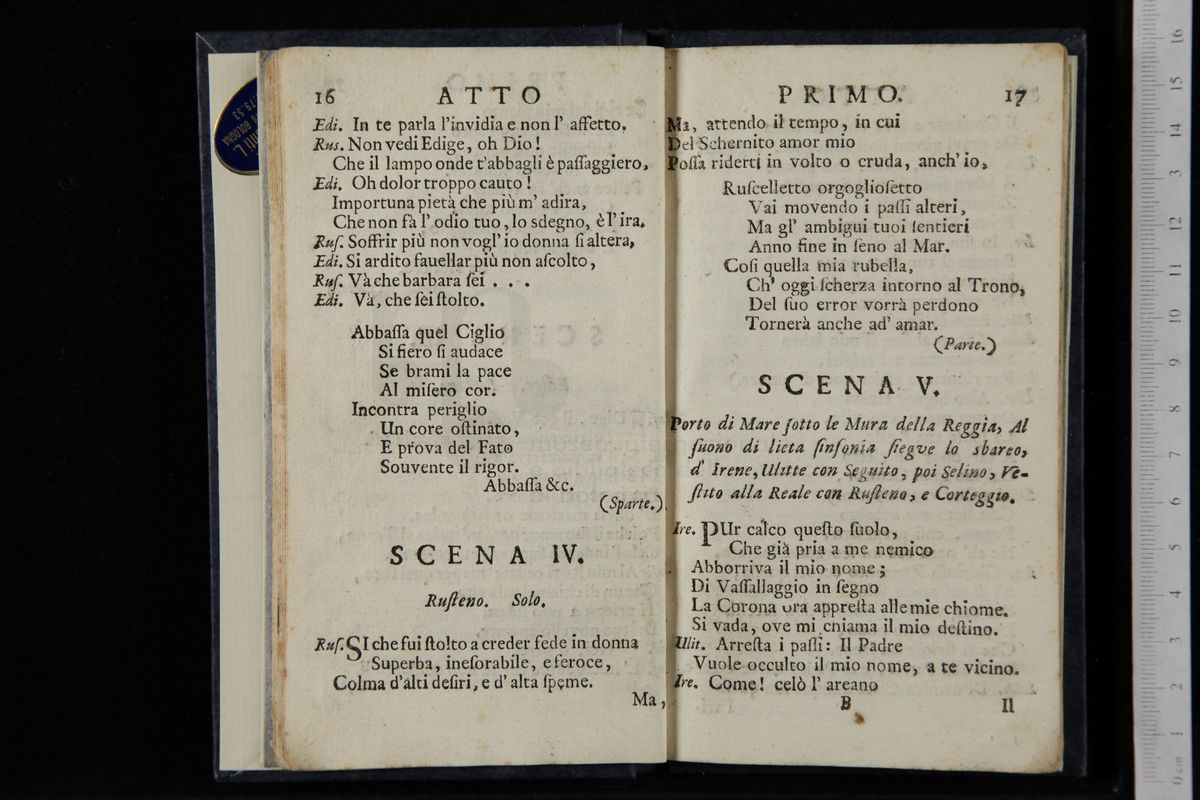 16 ATTO
Edi. In te parla l'invidia e non l' affetto.
Ruſ. Non vedi Edige, oh Dio!
Che il lampo onde t'abbagli è paſſaggiero,
Edi. Oh dolor troppo cauto!
Importuna pietà che più m' adira,
Che non fà l' odio tuo, lo sdegno, è l' ira.
Ruſ. Soffrir più non vogl' io donna ſi altera,
Edi. Si ardito fauellar più non aſcolto,
Ruſ. Và che barbara ſei . . .
Edi. Và, che ſei ſtolto.
Abbaſſa quel Ciglio
Si fiero ſi audace
Se brami la pace
Al miſero cor.
Incontra periglio
Un core oſtinato,
E prova del Fato
Souvente il rigor.
Abbaſſa &c.
(Sparte.)
SCENA IV.
Ruſteno. Solo.
Ruſ. SI che fui ſtolto a creder fede in donna
Superba, ineſorabile, e feroce,
Colma d'alti deſiri, e d' alta ſpeme.
Ma,
PRIMO. 17
Ma, attendo il tempo, in cui
Del Schernito amor mio
Poſſa riderti in volto o cruda, anch' io,
Ruſcelletto orgoglioſetto
Vai movendo i paſſi alteri,
Ma gl' ambigui tuoi ſentieri
Anno fine in ſeno al Mar.
Coſi quella mia rubella,
Ch' oggi ſcherza intorno al Trono,
Del ſuo error vorrà perdono
Tornerà anche ad' amar.
(Parte.)
SCENA V.
Porto di Mare ſotto le Mura della Reggia, Al
ſuono di lieta ſinfonia ſiegve lo sbarco,
d' Irene, Ulitte con Seguito, poi Selino, Ve-
ſtito alla Reale con Ruſteno, e Corteggio.
Ire. PUr calco queſto ſuolo,
Che già pria a me nemico
Abborriva il mio nome;
Di Vaſſallaggio in ſegno
La Corona ora appreſta alle mie chiome.
Si vada, ove mi chiama il mio deſtino.
Ulit. Arreſta i paſſi: Il Padre
Vuole occulto il mio nome, a te vicino.
Ire. Come! celò l' arcano
B Il